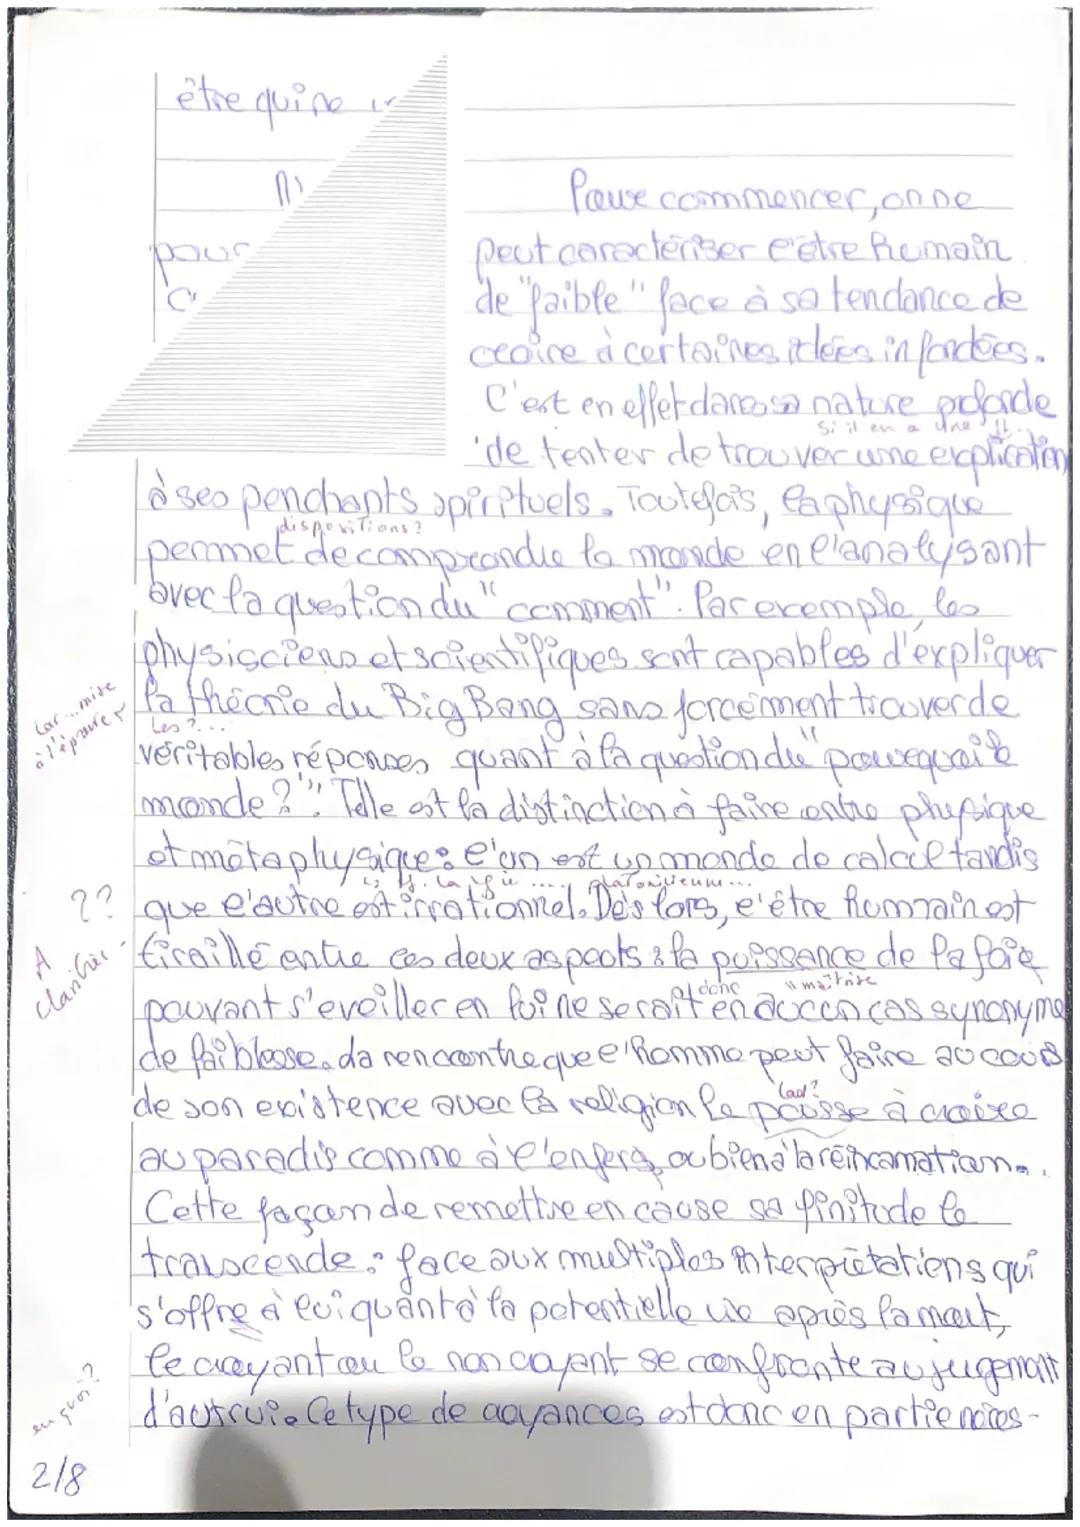 être qui ne
Pour commencer, on ne
pour
peut caractériser l'être humain
de "faible" face à sa tendance de
croire à certaines idées infondées.
C'est en effet dans sa nature profonde
si il en a une !!...
de tenter de trouver une explication
à ses penchants spirituels. Toutefois, la physique
dispositions ?
permet de comprendre le monde en l'analysant
avec la question du "comment". Par exemple, les
physisciens et scientifiques sont capables d'expliquer
la théorie du Big Bang sans forcément trouver de
Car... mise
à l'épreuve
les ?...
véritables réponses quant à la question du "pourquoi le
monde ?". Telle est la distinction à faire entre physique
et métaphysique : l'un est un monde de calcul tandis
platonicienne...
que l'autre est irrationnel. Dès lors, l'être humain est
??
A
clarifier.
tiraillé entre ces deux aspects : la puissance de la foie
donc
"maîtrise
pouvant s'eveiller en lui ne serait en aucun cas synonyme
de faiblesse. La rencontre que l'Homme peut faire au cours
Cad ?
de son existence avec la religion le pousse à croire
au paradis comme à l'enfers, ou bien à la réincarnation..
Cette façon de remettre en cause sa finitude le
transcende : face aux multiples interprétations qui
s'offre à lui quant à la potentielle vie après la mort,
le croyant ou le non coyant se confronte au jugement
en quoi ?
d'autrui. Ce type de coyances est donc en partie néces-
2/8